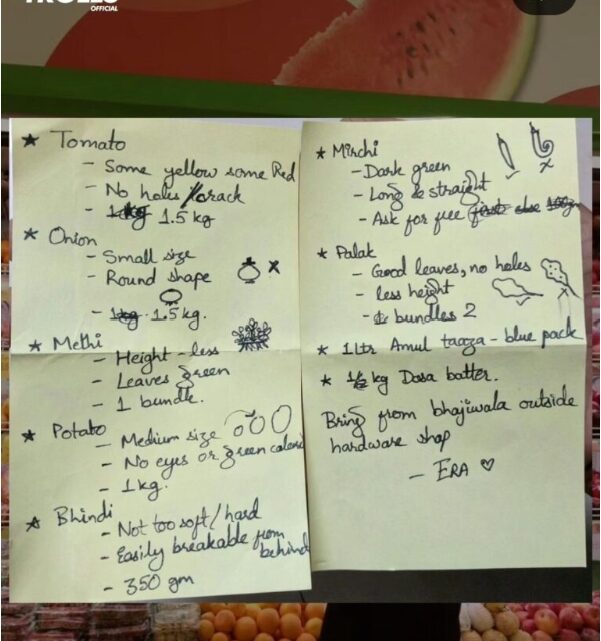 TROLLS
OFFICIAL
★ Tomato
- Some yellow some Red
- No holes / crack
- 1kg 1.5 kg
★ Onion
- Small size
- Round shape
- 1kg. 1.5 kg.
★ Methi
- Height - less
- Leaves green
- 1 bundle.
★ Potato
- Medium size
- No eyes or green color
- 1 kg.
★ Bhindi
- Not too soft / hard
- Easily breakable from
behind
- 350 gm
★ Mirchi
- Dark green
- Long & straight
- Ask for free first else 100gm
★ Palak
- Good leaves, no holes
- less height
- bundles 2
★ 1 ltr Amul taaza - blue pack
★ 1/2 kg Dosa batter.
Bring from bhajiwala outside
hardware shop
- ERA ♡